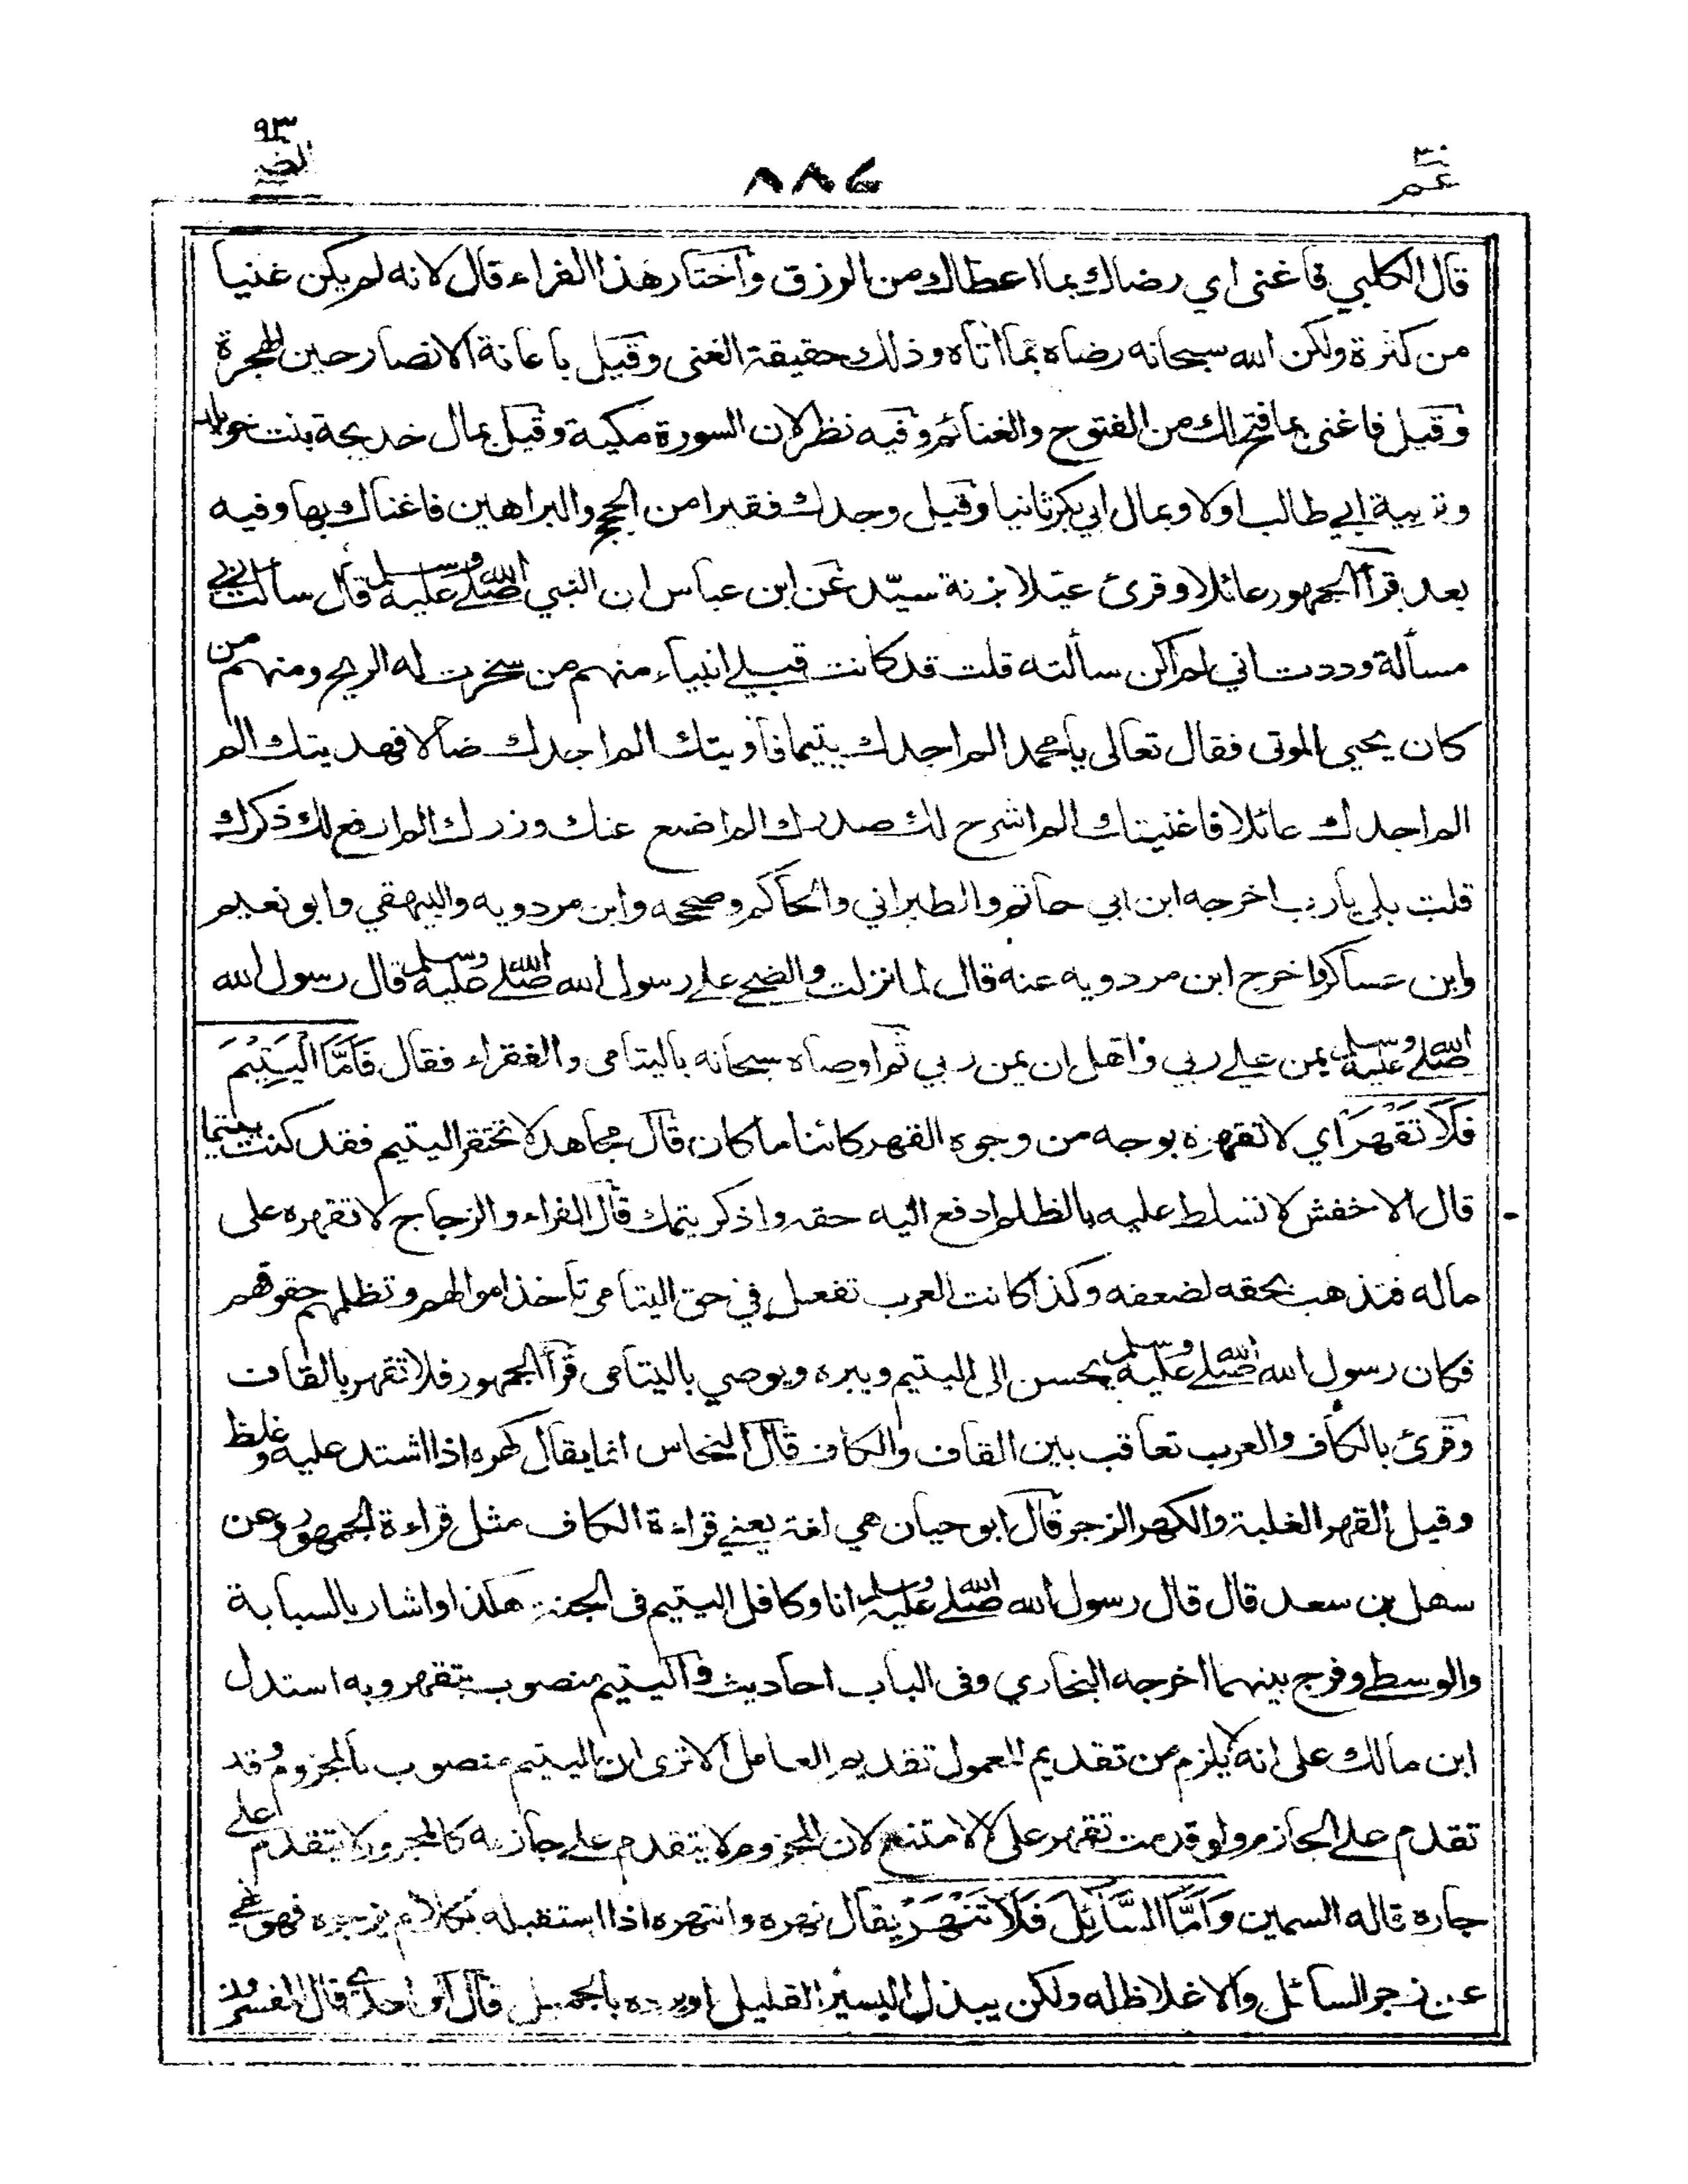 ٣٠
عم
٨٨٤
٩٣
الضحى
قال الكلبي فاغنى اي رضاك بما اعطاك من الرزق واختار هذا الفراء قال لانه لم يكن غنيا
من كثرة ولكن الله سبحانه رضاه بما اتاه وذلك حقيقة الغنى وقيل باعانة الانصار حين الهجرة
وقيل فاغنى بما فتح لك من الفتوح والغنائم وفيه نظر لان السورة مكية وقيل بمال خديجة بنت خويلد
وتربية ابي طالب اولا وبمال ابي بكر ثانيا وقيل وجدك فقيرا من الحجج والبراهين فاغناك بها وفيه
بعد قرأ الجمهور عائلا وقرئ عيّلا بزنة سيّد عن ابن عباس ان النبي صلى الله عليه وسلم قال سألت ربي
مسألة وددت اني لم اكن سألته قلت قد كانت قبلي انبياء منهم من سخرت له الريح ومنهم من
كان يحيي الموتى فقال تعالى يا محمد الم اجدك يتيما فآويتك الم اجدك ضالا فهديتك الم
الم اجدك عائلا فاغنيتك الم اشرح لك صدرك الم اضع عنك وزرك الم ارفع لك ذكرك
قلت بلى يا رب اخرجه ابن ابي حاتم والطبراني والحاكم وصححه وابن مردويه والبيهقي وابو نعيم
وابن عساكر واخرج ابن مردويه عنه قال لما نزلت والضحى على رسول الله صلى الله عليه وسلم قال رسول الله
صلى الله عليه وسلم يمن علي ربي واهل ان يمن ربي ثم اوصاه سبحانه باليتامى والفقراء فقال فَأَمَّا الْيَتِيْمَ
فَلَا تَقْهَرْ اي لا تقهره بوجه من وجوه القهر كائنا ما كان قال مجاهد لا تحتقر اليتيم فقد كنت يتيما
قال الاخفش لا تسلط عليه بالظلم ادفع اليه حقه واذكر يتمك قال الفراء والزجاج لا تقهره على
ماله فتذهب بحقه لضعفه وكذا كانت العرب تفعل في حق اليتامى تأخذ اموالهم وتظلمهم حقوقهم
فكان رسول الله صلى الله عليه وسلم يحسن الى اليتيم ويبره ويوصي باليتامى قرأ الجمهور فلا تقهر بالقاف
وقرئ بالكاف والعرب تعاقب بين القاف والكاف قال النحاس انما يقال كهره اذا اشتد عليه وغلظ
وقيل القهر الغلبة والكهر الزجر قال ابو حيان هي لغة يعني قراءة الكاف مثل قراءة الجمهور وعن
سهل بن سعد قال قال رسول الله صلى الله عليه وسلم انا وكافل اليتيم في الجنة هكذا واشار بالسبابة
والوسطى وفرج بينهما اخرجه البخاري وفى الباب احاديث واليتيم منصوب بتقهر وبه استدل
ابن مالك على انه لا يلزم من تقديم المعمول تقديم العامل الا ترى ان اليتيم منصوب بالمجزوم وقد
تقدم على الجازم ولو قدمت تقهر على لا لامتنع لان المجزوم لا يتقدم على جازمه كالمجرور لا يتقدم على
جاره قاله السمين وَأَمَّا السَّائِلَ فَلَا تَنْهَرْ يقال نهره وانتهره اذا استقبله بكلام يزجره فهو نهي
عن زجر السائل والاغلاظ له ولكن يبذل اليسير القليل او يرده بالجميل قال الواحدي قال المفسرون